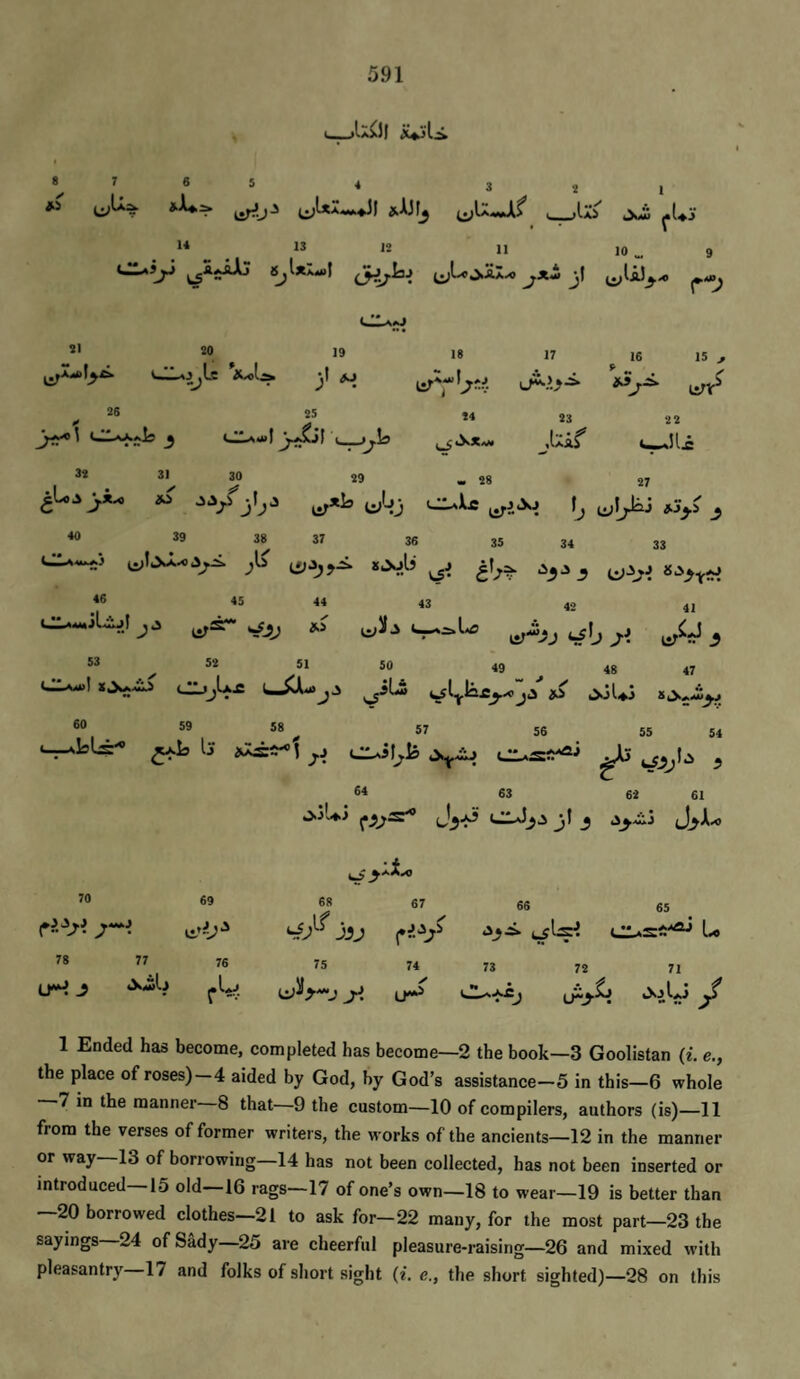 591
خاتمة الکتاب
8 7 6 5 4 3 2 1
تمام شد کتاب گلستان والله المستعان درین جمله چنان که
14 13 12 11 10 9
رسم مولفان از شعر متقدمان بطریق استعارة تلفیقی نرفت
بیت
21 20 19 18 17 16 15
کهن خرقه خویش پیراستن به از جامه عاریت خواستن
26 25 24 23 22
غالب گفتار سعدی طرب انگیز است و طیبت آمیز
32 31 30 29 28 27
و کوته نظران را بدین علت زبان طعن دراز گردد که مغز دماغ
40 39 38 37 36 35 34 33
بیهوده بردن و دود چراغ بی فایده خوردن کار خردمندان نیست
46 45 44 43 42 41
و لیکن بر رای روشن صاحب دلان که روی سخن در ایشانست
53 52 51 50 49 48 47
پوشیده نماند که در موعظهای شافی در سلک عبارت کشیده است
60 59 58 57 56 55 54
و داروی تلخ نصیحت بشهد ظرافت بر آمیخته تا طبع مخاطب
64 63 62 61
ملول نشود و از دولت قبول محروم نماند
مثنوی
70 69 68 67 66 65
ما نصیحت بجای خود کردیم روزگاری درین بسر بردیم
78 77 76 75 74 73 72 71
گر نیاید بگوش رغبت کس بر رسولان پیام باشد و بس
1 Ended has become, completed has become—2 the book—3 Goolistan (i. e.,
the place of roses)—4 aided by God, by God's assistance—5 in this—6 whole
—7 in the manner—8 that—9 the custom—10 of compilers, authors (is)—11
from the verses of former writers, the works of the ancients—12 in the manner
or way—13 of borrowing—14 has not been collected, has not been inserted or
introduced—15 old—16 rags—17 of one's own—18 to wear—19 is better than
—20 borrowed clothes—21 to ask for—22 many, for the most part—23 the
sayings—24 of Sâdy—25 are cheerful pleasure-raising—26 and mixed with
pleasantry—17 and folks of short sight (i. e., the short sighted)—28 on this